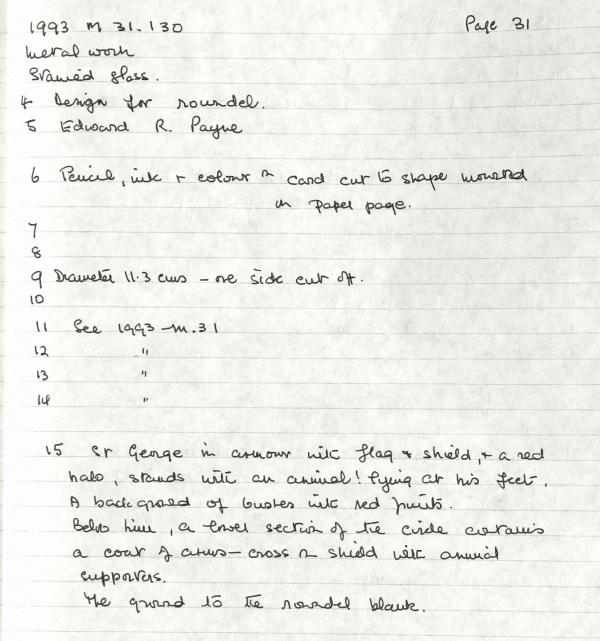 1993 M 31.130 Page 31
Metal work
Stained glass.
4 Design for roundel.
5 Edward R. Payne
6 Pencil, ink + colour on card cut to shape mounted
on paper page.
7
8
9 Diameter 11.3 cms – one side cut off.
10
11 See 1993-M.31
12 "
13 "
14 "
15 St George in armour with flag & shield, + a red
halo, stands with an animal! lying at his feet.
A background of bushes with red fruits.
Below him, a lower section of the circle contains
a coat of arms – cross on shield with animal
supporters.
The ground to the roundel blank.